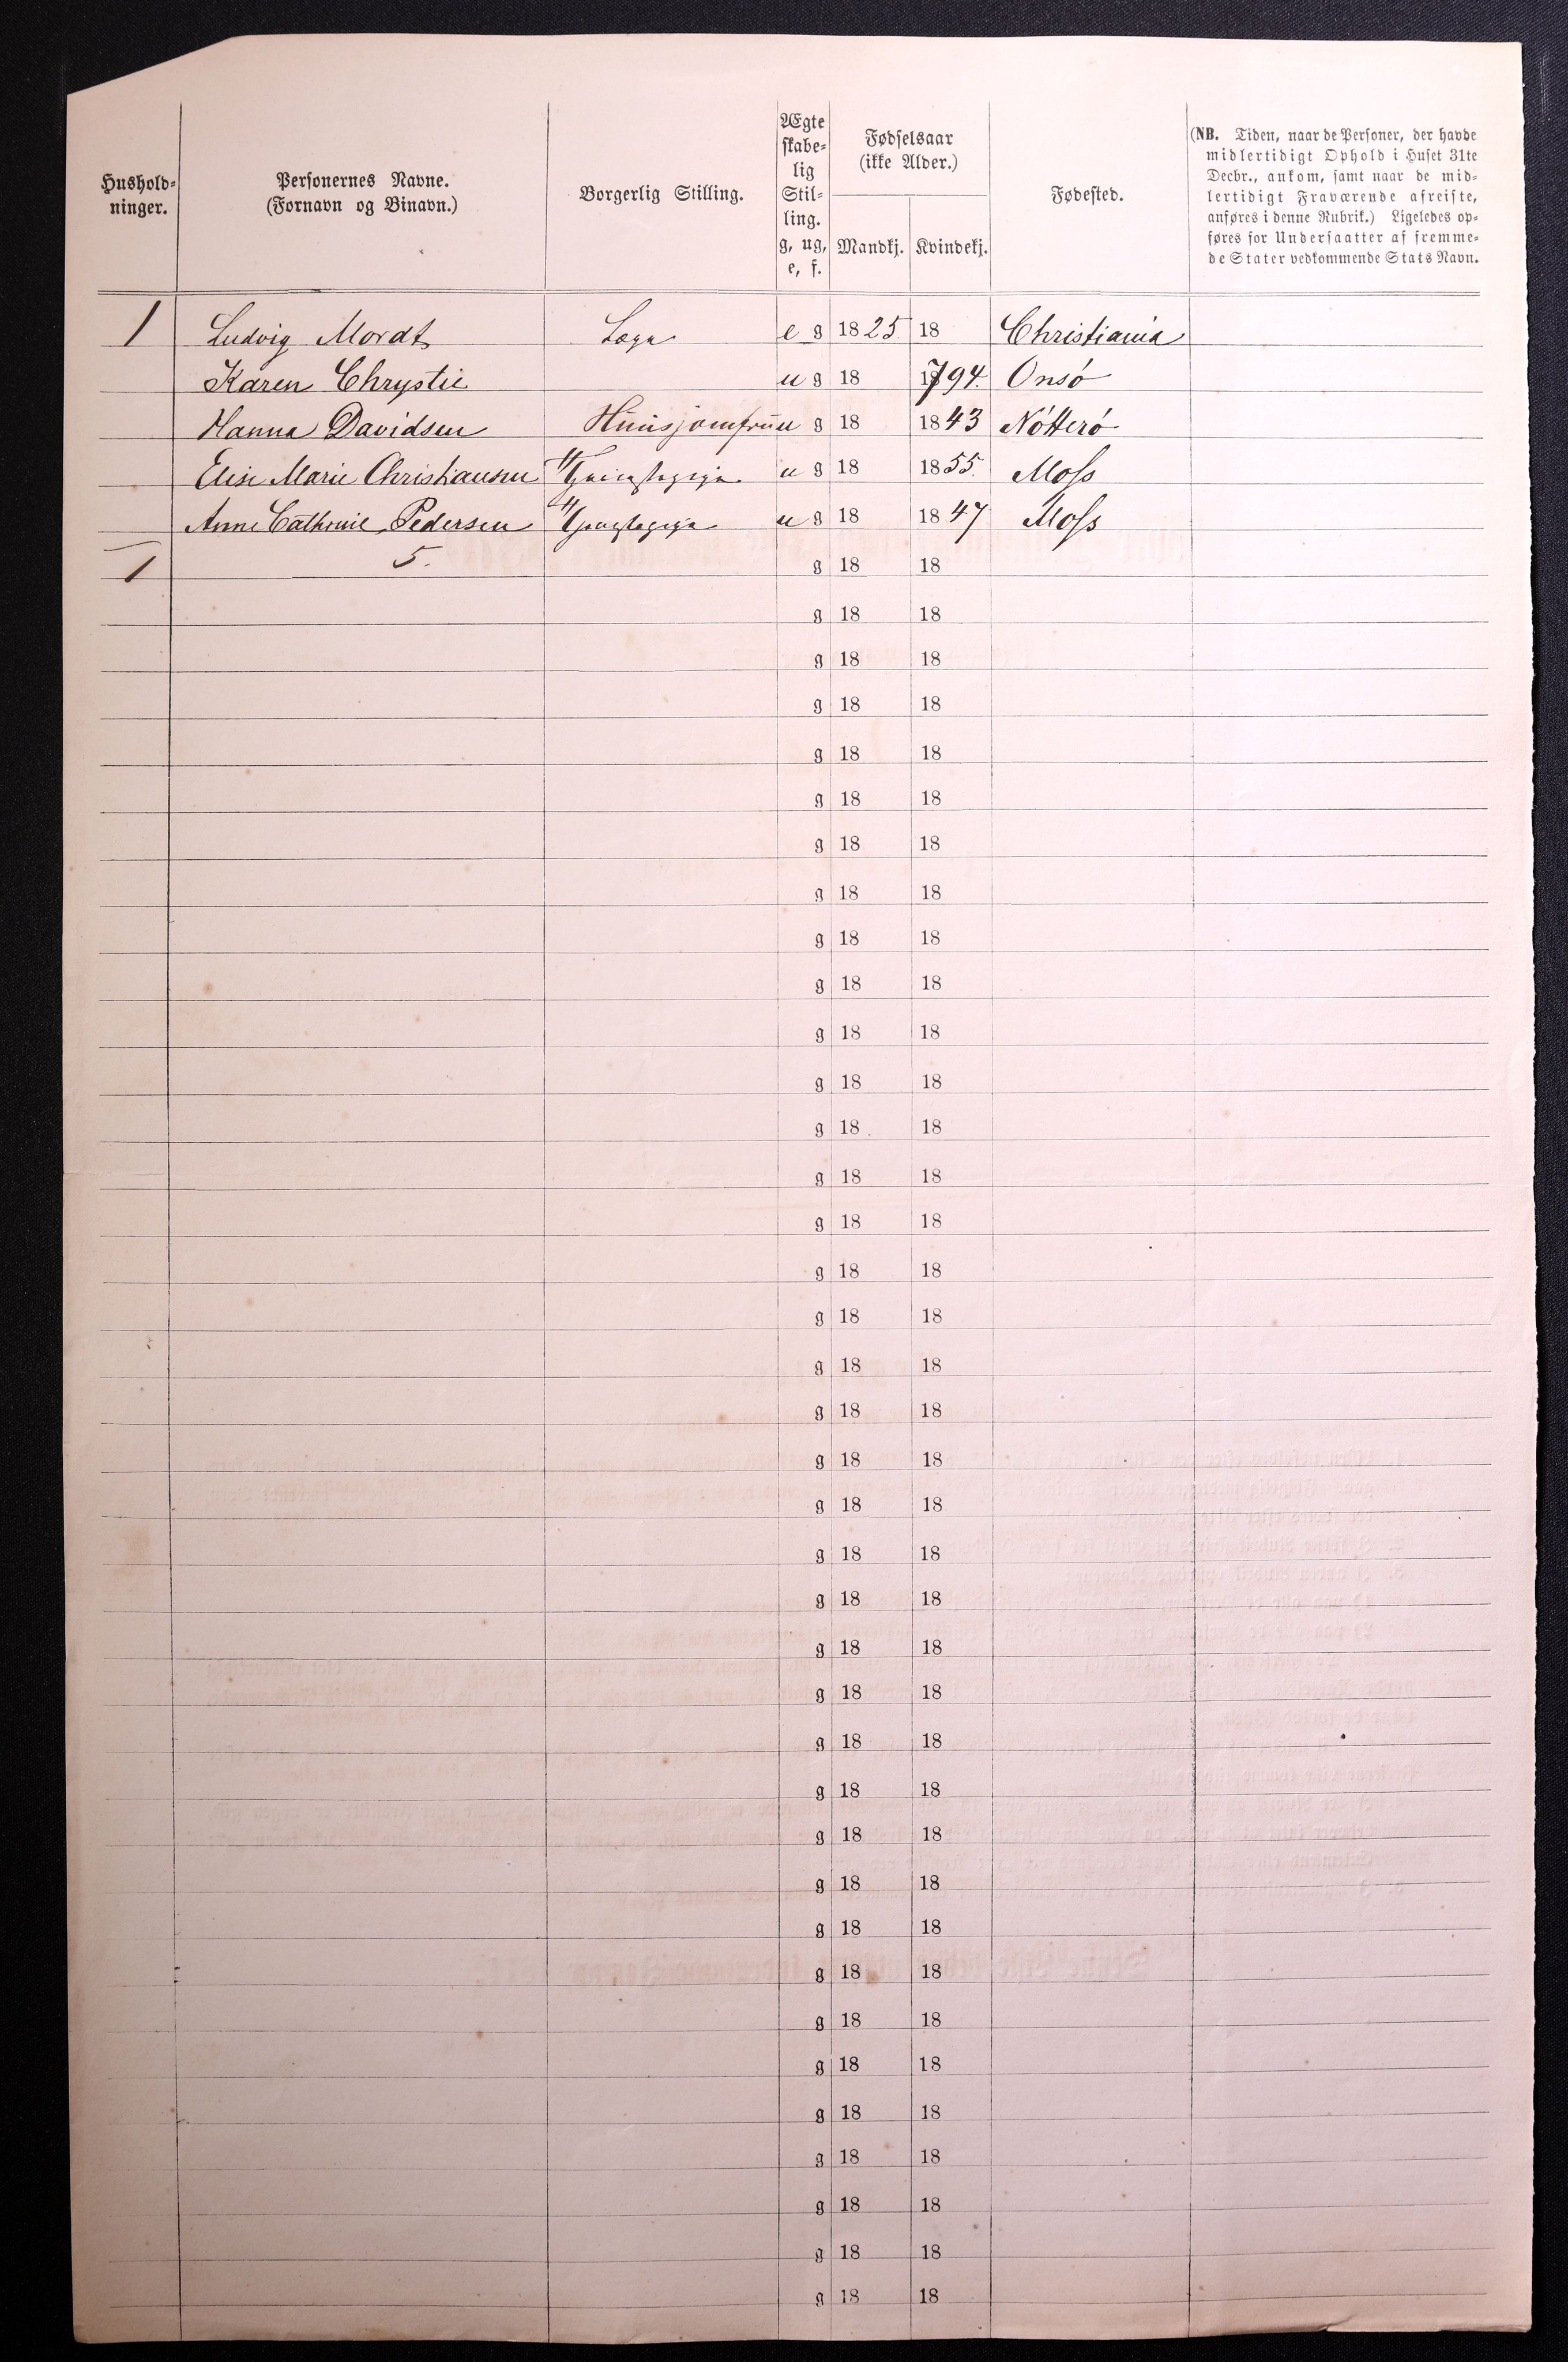 Hushold-
ninger.
Personernes Navne.
(Fornavn og Binavn.)
Borgerlig Stilling.
Ægte
skabe-
lig
Stil-
ling.
g, ug,
e, f.
Fødselsaar
(ikke Alder.)
Mandkj. Kvindekj.
Fødested.
(NB. Tiden, naar de Personer, der havde
midlertidigt Ophold i Huset 31te
Decbr., ankom, samt naar de mid-
lertidigt Fraværende afreiste,
anføres i denne Rubrik.) Ligeledes op-
føres for Undersaatter af fremme-
de Stater vedkommende Stats Navn.
1 Ludvig Mordt Læge e g 1825 18 Christiania
Karen Chrystie u g 18 1794. Onsö
Hanna Davidsen Huusjomfru u g 18 1843 Nötterö
Elise Marie Christiansen u g 18 1855. Moss
Anne Cathrine Pedersen u g 18 1847 Moss
1 5. g 18 18
g 18 18
g 18 18
g 18 18
g 18 18
g 18 18
g 18 18
g 18 18
g 18 18
g 18 18
g 18 18
g 18 18
g 18 18
g 18 18
g 18 18
g 18 18
g 18 18
g 18 18
g 18 18
g 18 18
g 18 18
g 18 18
g 18 18
g 18 18
g 18 18
g 18 18
g 18 18
g 18 18
g 18 18
g 18 18
g 18 18
g 18 18
g 18 18
g 18 18
g 18 18
g 18 18
g 18 18
g 18 18